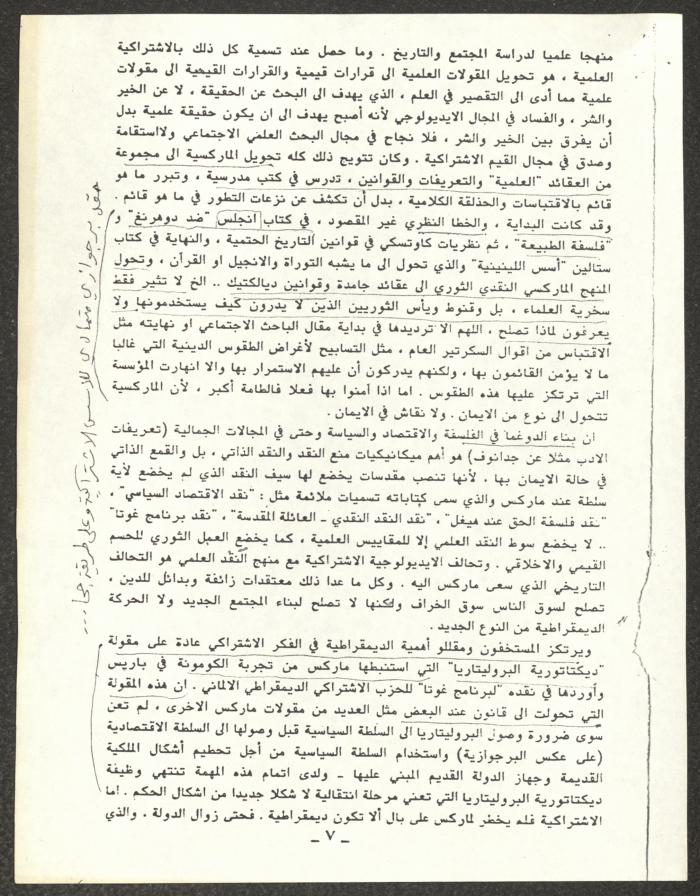 منهجا علميا لدراسة المجتمع والتاريخ . وما حصل عند تسمية كل ذلك بالاشتراكية
العلمية ، هو تحويل المقولات العلمية الى قرارات قيمية والقرارات القيمية الى مقولات
علمية مما أدى الى التقصير في العلم ، الذي يهدف الى البحث عن الحقيقة ، لا عن الخير
والشر ، والفساد في المجال الايديولوجي لأنه أصبح يهدف الى ان يكون حقيقة علمية بدل
أن يفرق بين الخير والشر ، فلا نجاح في مجال البحث العلمي الاجتماعي ولااستقامة
وصدق في مجال القيم الاشتراكية . وكان تتويج ذلك كله تحويل الماركسية الى مجموعة
من العقائد "العلمية" والتعريفات والقوانين ، تدرس في كتب مدرسية ، وتبرر ما هو
قائم بالاقتباسات والحذلقة الكلامية ، بدل أن تكشف عن نزعات التطور في ما هو قائم .
وقد كانت البداية ، والخطا النظري غير المقصود ، في كتاب انجلس "ضد دوهرنغ" و
"فلسفة الطبيعة" ، ثم نظريات كاوتسكي في قوانين التاريخ الحتمية ، والنهاية في كتاب
ستالين "أسس اللينينية" والذي تحول الى ما يشبه التوراة والانجيل او القرآن ، وتحول
المنهج الماركسي النقدي الثوري الى عقائد جامدة وقوانين ديالكتيك .. الخ لا تثير فقط
سخرية العلماء ، بل وقنوط ويأس الثوريين الذين لا يدرون كيف يستخدمونها ولا
يعرفون لماذا تصلح ، اللهم الا ترديدها في بداية مقال الباحث الاجتماعي او نهايته مثل
الاقتباس من اقوال السكرتير العام ، مثل التسابيح لأغراض الطقوس الدينية التي غالبا
ما لا يؤمن القائمون بها ، ولكنهم يدركون أن عليهم الاستمرار بها والا انهارت المؤسسة
التي ترتكز عليها هذه الطقوس . اما اذا آمنوا بها فعلا فالطامة أكبر ، لأن الماركسية
تتحول الى نوع من الايمان . ولا نقاش في الايمان .
ان بناء الدوغما في الفلسفة والاقتصاد والسياسة وحتى في المجالات الجمالية (تعريفات
الادب مثلا عن جدانوف) هو أهم ميكانيكيات منع النقد والنقد الذاتي ، بل والقمع الذاتي
في حالة الايمان بها . لأنها تنصب مقدسات يخضع لها سيف النقد الذي لم يخضع لأية
سلطة عند ماركس والذي سمى كتاباته تسميات ملائمة مثل : "نقد الاقتصاد السياسي" ،
"نقد فلسفة الحق عند هيغل" ، "نقد النقد النقدي - العائلة المقدسة" ، "نقد برنامج غوتا"
.. لا يخضع سوط النقد العلمي إلا للمقاييس العلمية ، كما يخضع العمل الثوري للحسم
القيمي والاخلاقي . وتحالف الايديولوجية الاشتراكية مع منهج النقد العلمي هو التحالف
التاريخي الذي سعى ماركس اليه . وكل ما عدا ذلك معتقدات زائفة وبدائل للدين ،
تصلح لسوق الناس سوق الخراف ولكنها لا تصلح لبناء المجتمع الجديد ولا الحركة
الديمقراطية من النوع الجديد .
ويرتكز المستخفون ومقللو أهمية الديمقراطية في الفكر الاشتراكي عادة على مقولة
"ديكتاتورية البروليتاريا" التي استنبطها ماركس من تجربة الكومونة في باريس
وأوردها في نقده "لبرنامج غوتا" للحزب الاشتراكي الديمقراطي الالماني . ان هذه المقولة
التي تحولت الى قانون عند البعض مثل العديد من مقولات ماركس الاخرى ، لم تعن
سوى ضرورة وصول البروليتاريا الى السلطة السياسية قبل وصولها الى السلطة الاقتصادية
(على عكس البرجوازية) واستخدام السلطة السياسية من أجل تحطيم أشكال الملكية
القديمة وجهاز الدولة القديم المبني عليها - ولدى اتمام هذه المهمة تنتهي وظيفة
ديكتاتورية البروليتاريا التي تعني مرحلة انتقالية لا شكلا جديدا من اشكال الحكم . اما
الاشتراكية فلم يخطر لماركس على بال ألا تكون ديمقراطية . فحتى زوال الدولة . والذي
- ٧ -